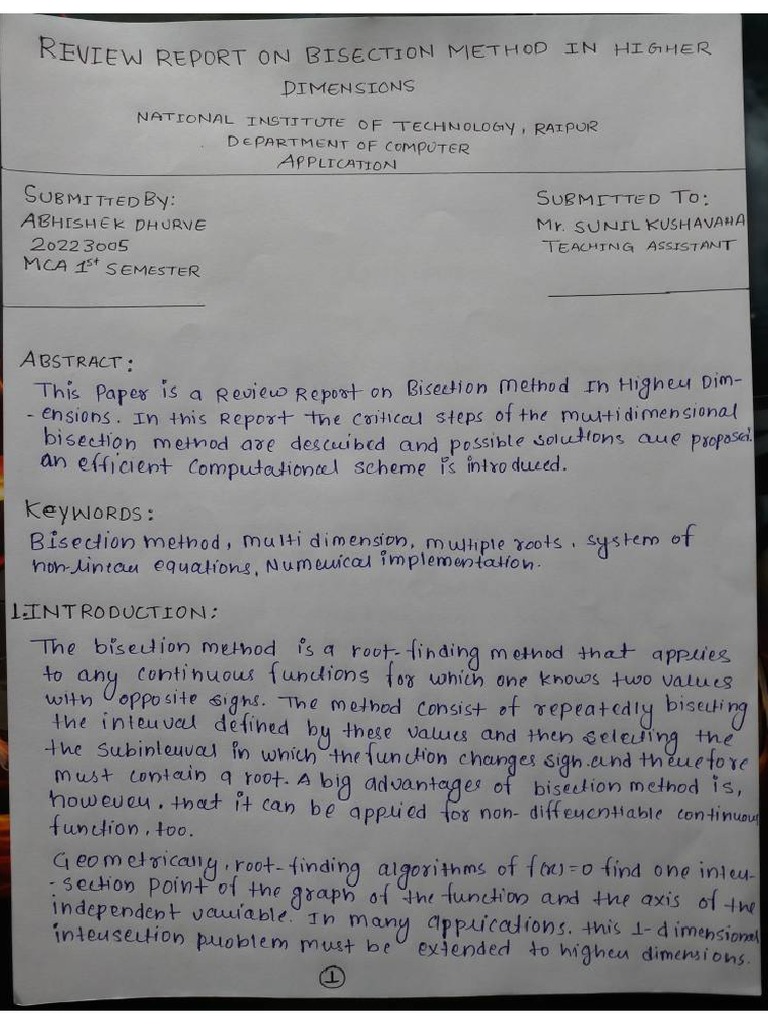 REVIEW REPORT ON BISECTION METHOD IN HIGHER
DIMENSIONS
NATIONAL INSTITUTE OF TECHNOLOGY, RAIPUR
DEPARTMENT OF COMPUTER
APPLICATION
SUBMITTED BY:
ABHISHEK DHURVE
20223005
MCA 1st SEMESTER
SUBMITTED TO:
Mr. SUNIL KUSHAVAHA
TEACHING ASSISTANT
ABSTRACT:
This Paper is a Review Report on Bisection Method In Higher Dim-
- ensions. In this Report The critical steps of the multidimensional
bisection method are described and possible solutions are proposed.
an efficient Computational Scheme is introduced.
KeyWORDS:
Bisection method, multi dimension, multiple roots, system of
non-linear equations, Numerical implementation.
1.INTRODUCTION:
The bisection method is a root-finding method that applies
to any continuous functions for which one knows two values
with opposite signs. The method consist of repeatedly bisecting
the interval defined by these values and then selecting the
the Subinterval in which the function changes sign.and therefore
must contain a root. A big advantages of bisection method is,
however, that it can be applied for non-differentiable continuous
function, too.
Geometrically, root-finding algorithms of f(x)=0 find one inter-
-section Point of the graph of the function and the axis of the
independent variable. In many applications, this 1-dimensional
intersection problem must be extended to higher dimensions.
1